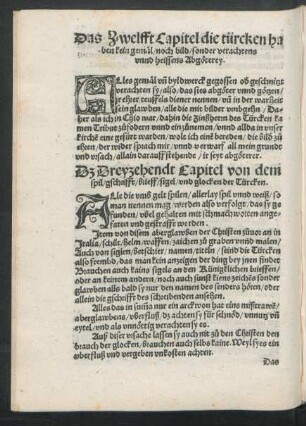 Das Zwelfft Capitel die türcken ha
ben kein gemäl/noch bild/sonder verachtens
vnnd heissens Abgötterey.
ALles gemäl vñ byldwerck gegossen od geschnitzt
verachten sy/also/das sies abgötter vnnd götzen/
glawben/alle die mit bilder vmbgehn/Da-
her als ich in Chio war/dahin die Zinßherrn des Türcken ka
men Tribut zůfodern vnnd einzůnemen/vnnd allda in vnser
kirch eine gefürt warden/wolt ich eins bereden/die bild zů
eheren/der wider sprach mir/vnnd verwarf all mein grundt
vnd vrsach/allain darauff stehende/ir seyt abgöterer.
Dz Dreyzehendt Capitel von dem
spil/gschrifft/brieff/sigel/vnd glocken der Türcken.
ALle die vmb gelt spilen/allerlay spil vnnd weiß/so
man nennen mag werden also verfolgt/das sy ge
funden/vbel gehalten mit schmachworten ange-
faren vnd gestrafft werden.
Item von disem aberglawben der Christen zůuor an in
Italia/schilt/helm/waffen/zaichen zů graben vnnd malen/
Auch von sigler/betschier/namen/titeln/seind die Türcken
also frembd/das man kein anzeigen der ding bey jnen findet
Brauchen auch kains sigels an den Küniglichen brieffen/
oder an einichen kains, noch auch sunst kleins zaichës/sonder
glawben alls bald sy nur den namen des senders hören/oder
allein die geschrifft des schreibenden ansehen.
Alles das in sum̃a nur ein arckwon hat eins mißtrawës/
aberglawbens/vberfluß/dz achten sy für schnöd/vnnutz vñ
eytel/vnd als vnnöttig verachten sy es.
Auß diser vrsache lassen sy auch nit zů den Christen den
brauch der glocken/brauchen auch selbs kaine. Weyl sy es ein
oberfluß vnd vergeben vnkosten achten.
Das